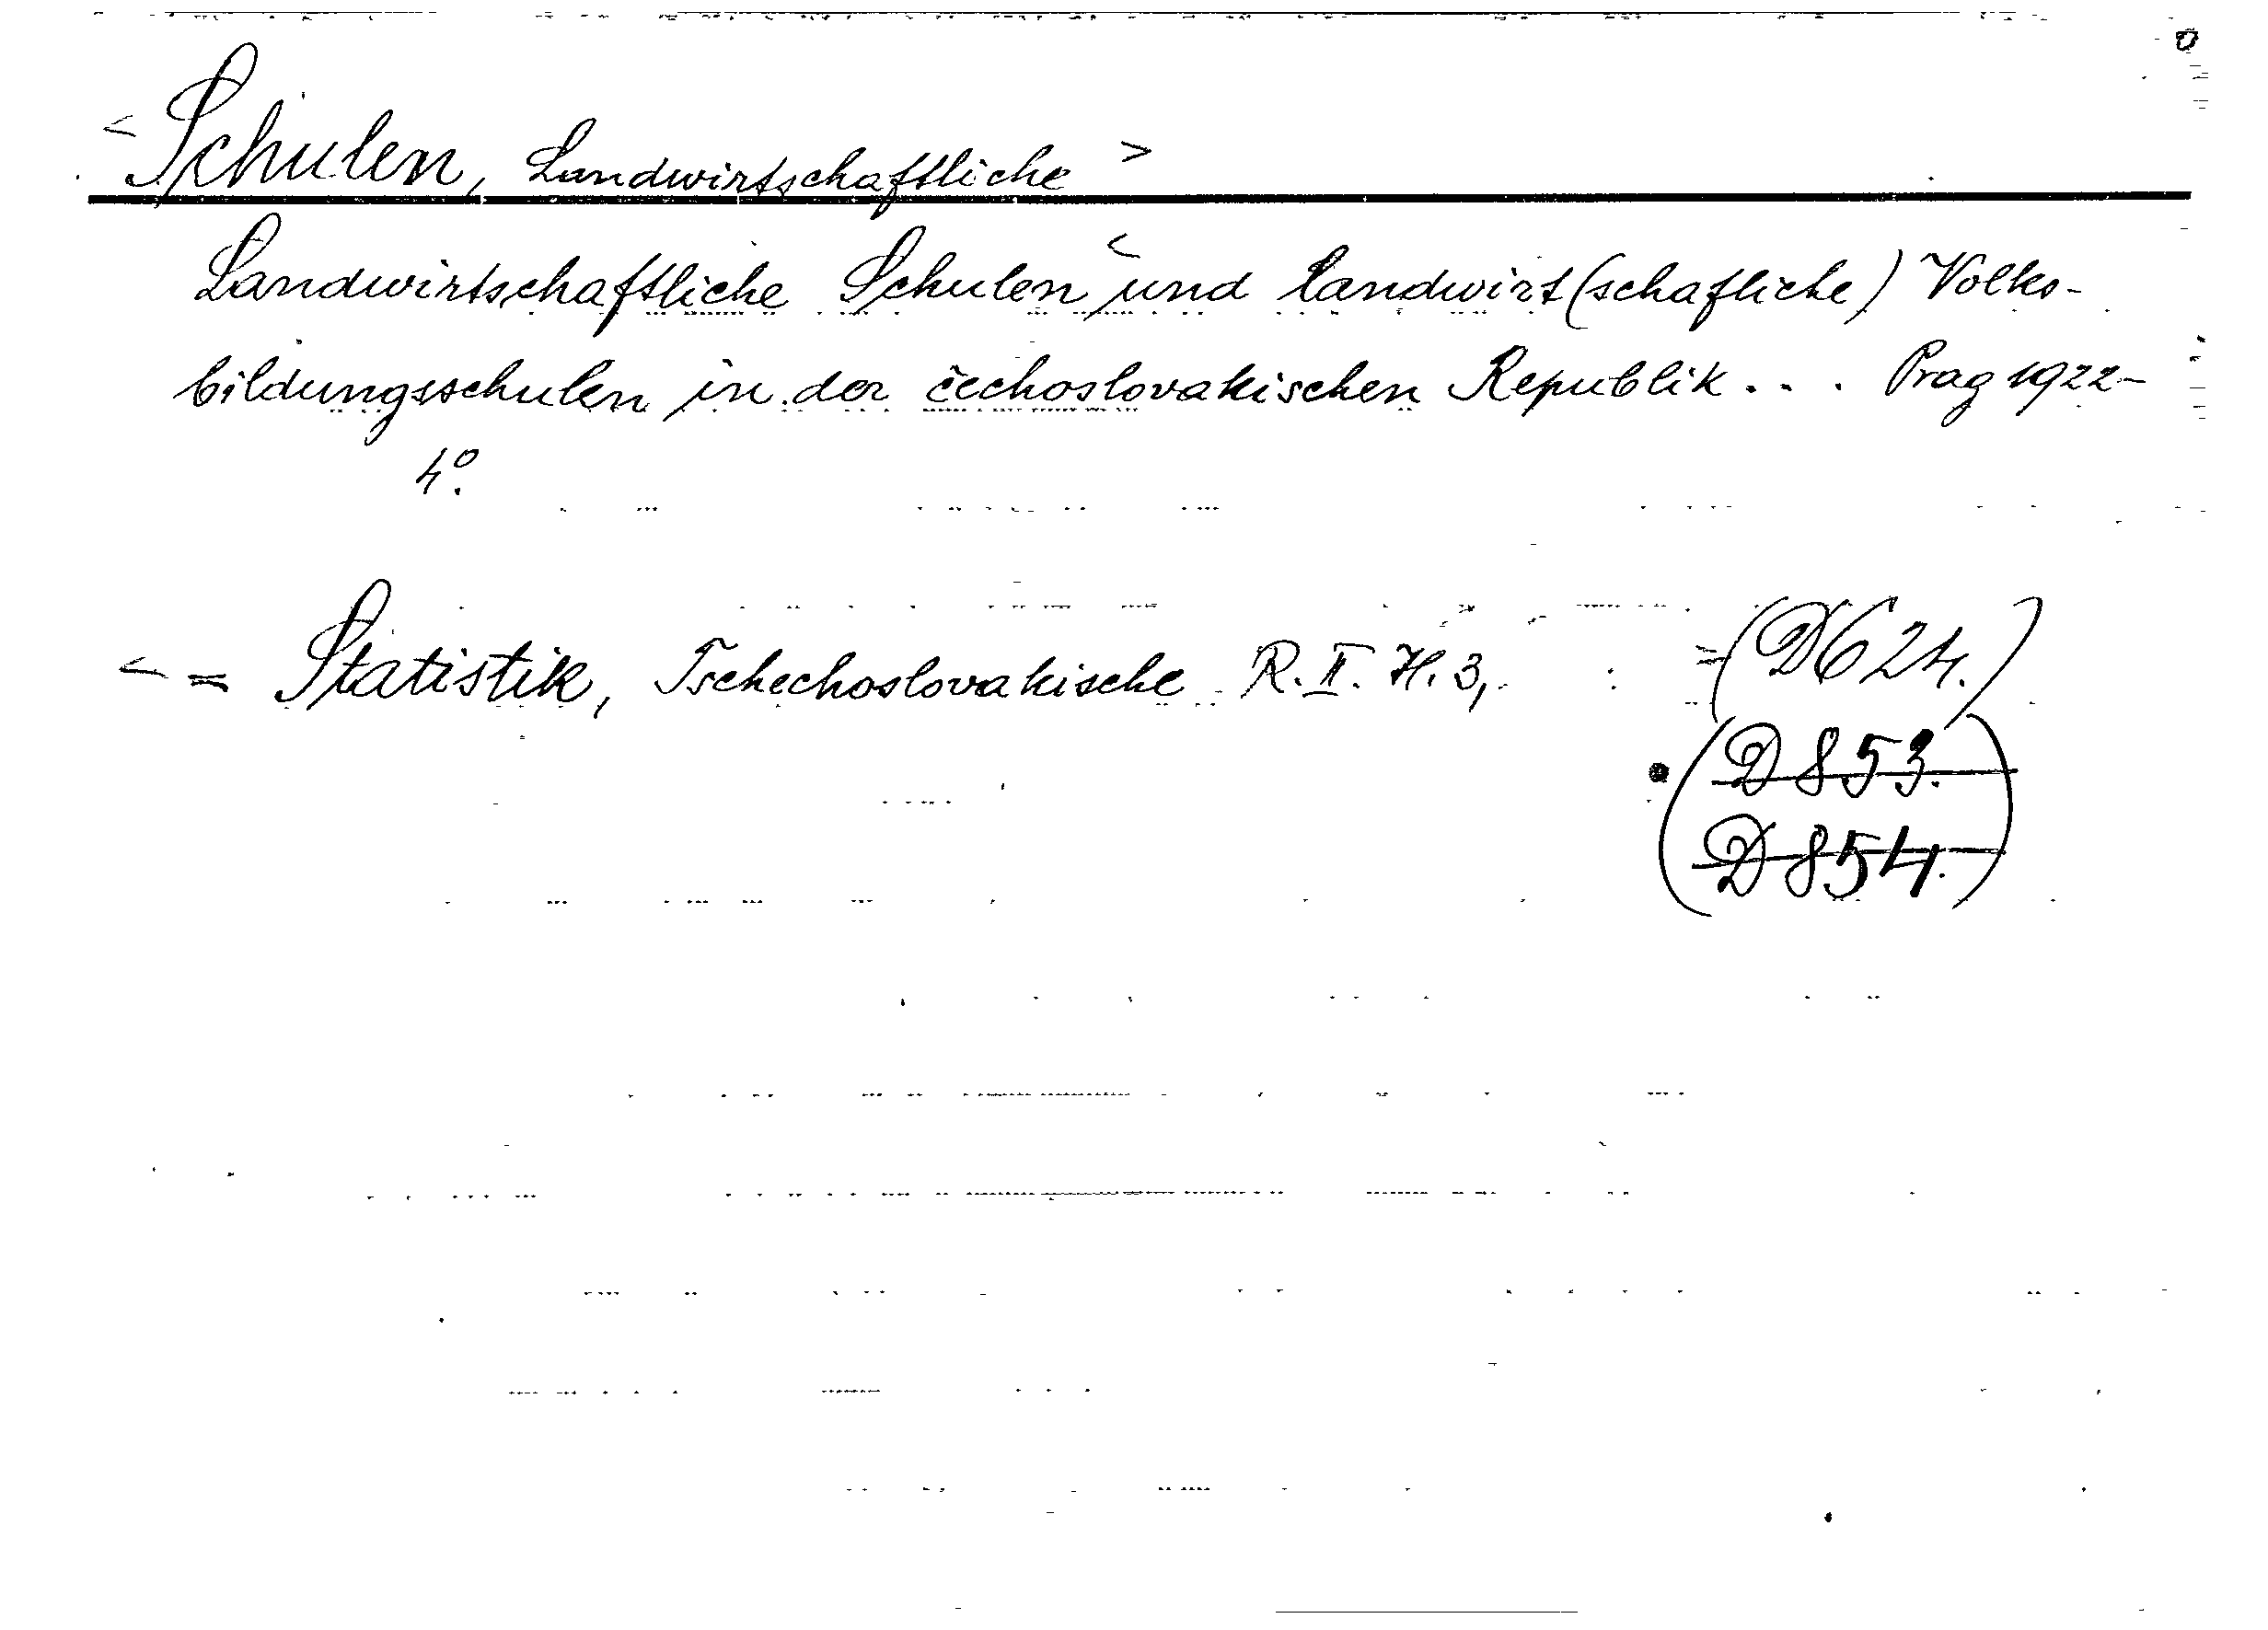 <Schulen, Landwirtschaftliche>
Landwirtschaftliche Schulen < und landwirt(schafliche) Volks-
bildungsschulen in der čechoslovakischen Republik... Prag 1922-
4°.
<= Statistik, Tschechoslovakische R. II. H. 3,. : =(D624.)
(D853.
D854.)